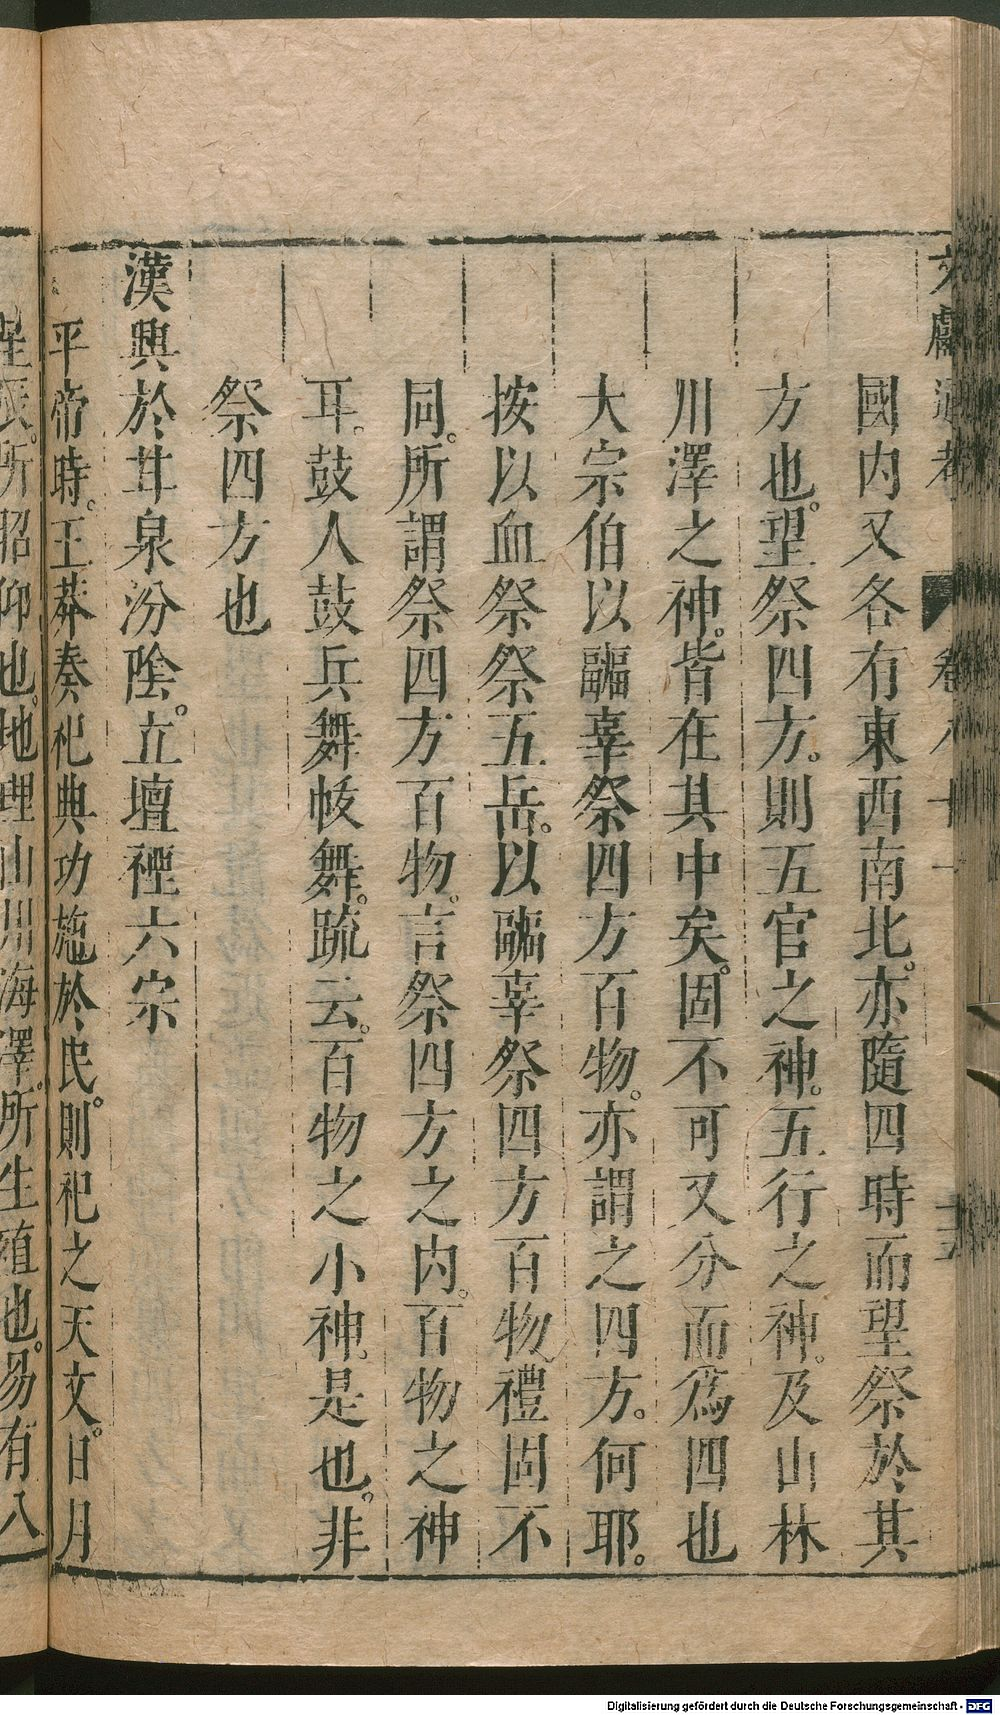 文獻通考 卷八十一 十五
國内又各有東西南北。亦隨四時而望祭於其
方也。望祭四方。則五官之神。五行之神。及山林
川澤之神。皆在其中矣。固不可又分而爲四也
大宗伯以疈辜祭四方百物。亦謂之四方。何耶。
按以血祭祭五岳。以疈辜祭四方百物。禮固不
同。所謂祭四方百物。言祭四方之内。百物之神
耳。鼓人鼓兵舞帗舞。䟽云。百物之小神。是也。非
祭四方也
漢興於甘泉汾陰。立壇禋六宗
平帝時。王莽奏祀典功施於民。則祀之天文。日月
星辰。所昭仰也。地理山川海澤。所生殖也。易有八
Digitalisierung gefördert durch die Deutsche Forschungsgemeinschaft - DFG